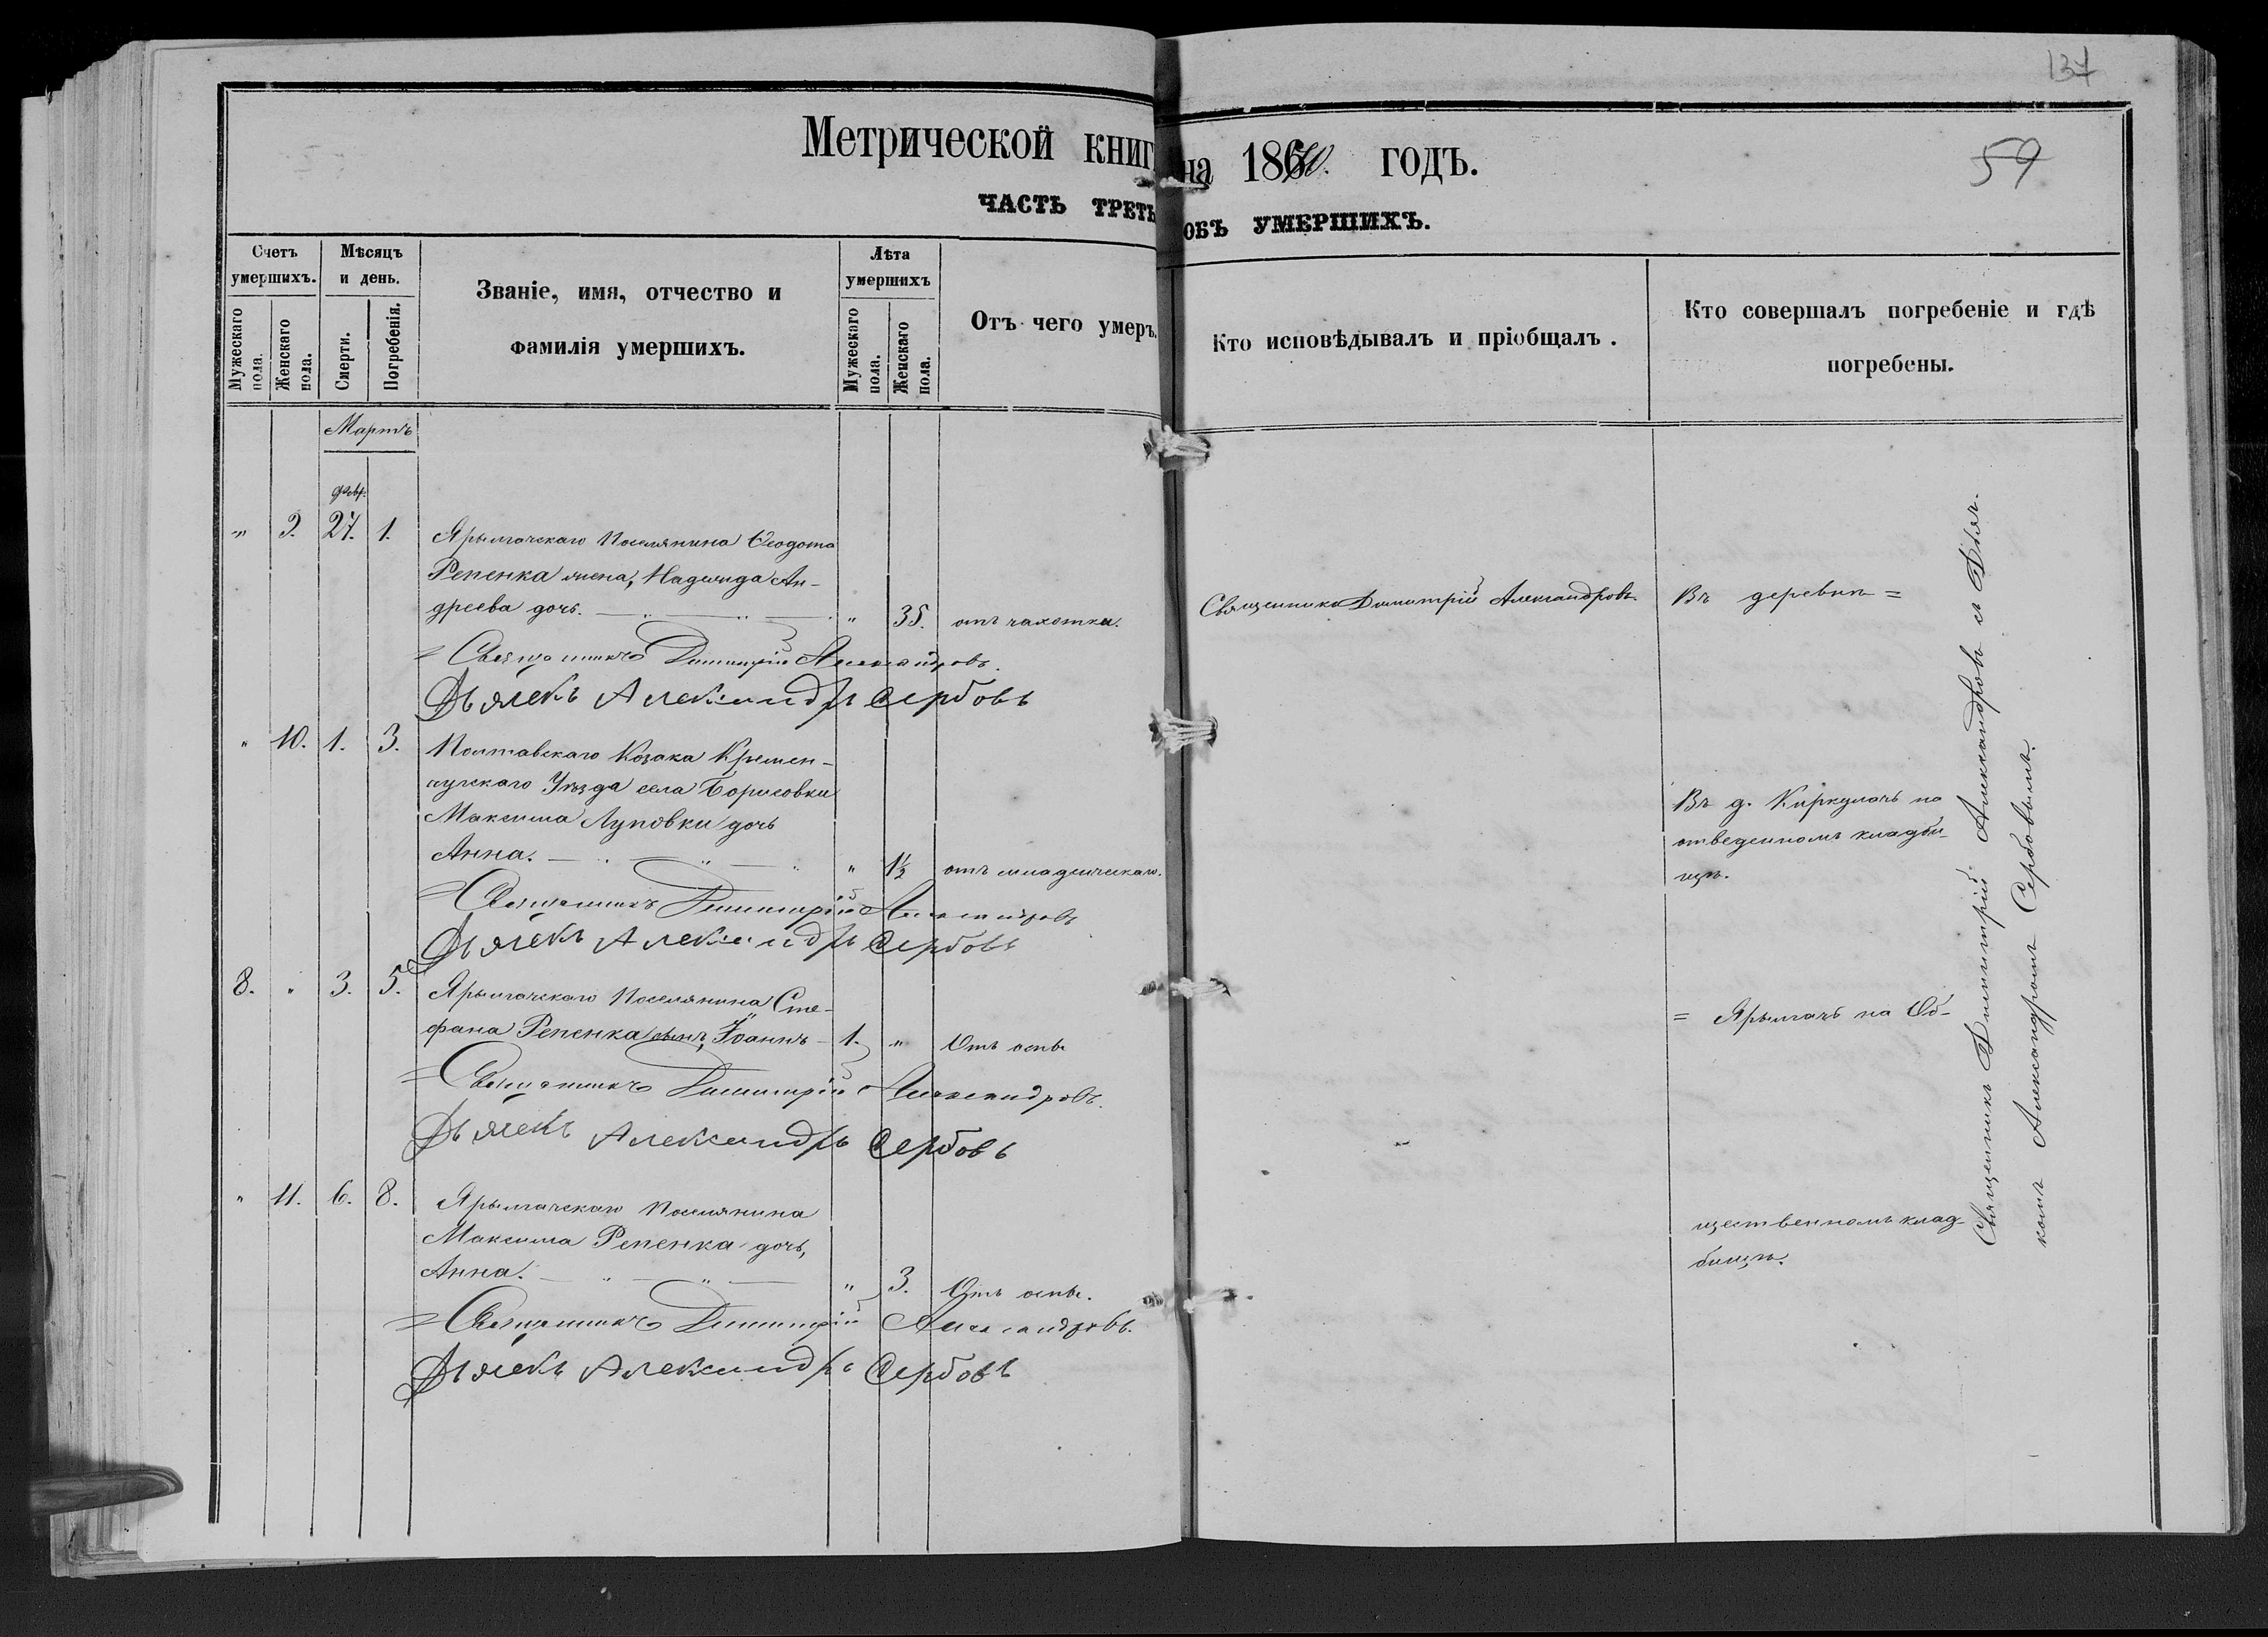 137
59
Метрической книг на 1870. годъ.
ЧАСТЬ ТРЕТЬ ОБЪ УМЕРШИХЪ.
Счетъ умершихъ.
Мужескаго пола.
Женскаго пола.
Мѣсяцъ и день.
Смерти.
Погребенія.
Званіе, имя, отчество и
фамилія умершихъ.
Лѣта умершихъ
Мужескаго пола.
Женскаго пола.
Отъ чего умеръ.
Кто исповѣдывалъ и пріобщалъ.
Кто совершалъ погребеніе и гдѣ
погребены.
Мартъ
февр.
" 9. 27. 1. Ярылгачскаго Поселянина Ѳеодота
Репенка жена, Надежда Ан-
дреева дочь. " 35. отъ чахотки. Священникъ Димитрій Александровъ. Въ деревнѣ =
= Священникъ Димитрій Александровъ.
Дьячекъ Александръ Сербовъ
" 10. 1. 3. Полтавскаго Козака Кремен-
чугскаго Уѣзда села Борисовки
Максима Луповки дочь
Анна. " 1½ отъ младенческаго.
Въ д. Киркулачъ на
отведенномъ кладби-
щѣ.
= Священникъ Димитрій Александровъ
Дьячекъ Александръ Сербовъ
8. " 3. 5. Ярылгачскаго Поселянина Сте-
фана Репенка сынъ, Іоаннъ 1. " Отъ оспы
= Ярылгачъ на Об-
= Священникъ Димитрій Александровъ.
Дьячекъ Александръ Сербовъ
" 11. 6. 8. Ярылгачскаго Поселянина
Максима Репенка дочь,
Анна. " 3. Отъ оспы.
щественномъ клад-
бищѣ.
= Священникъ Димитрій Александровъ.
Дьячекъ Александръ Сербовъ
Священникъ Димитрій Александровъ съ Дьяч-
комъ Александромъ Сербовымъ.